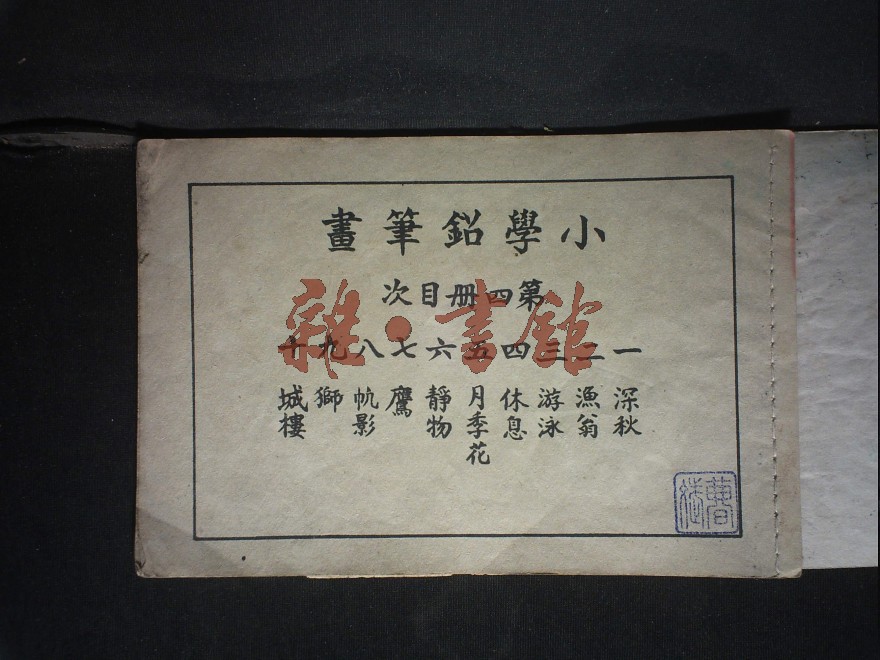 小學鉛筆畫
第四册目次
一 深秋
二 漁翁
三 游泳
四 休息
五 月季花
六 靜物
七 鷹
八 帆影
九 獅
十 城樓
雜·書館